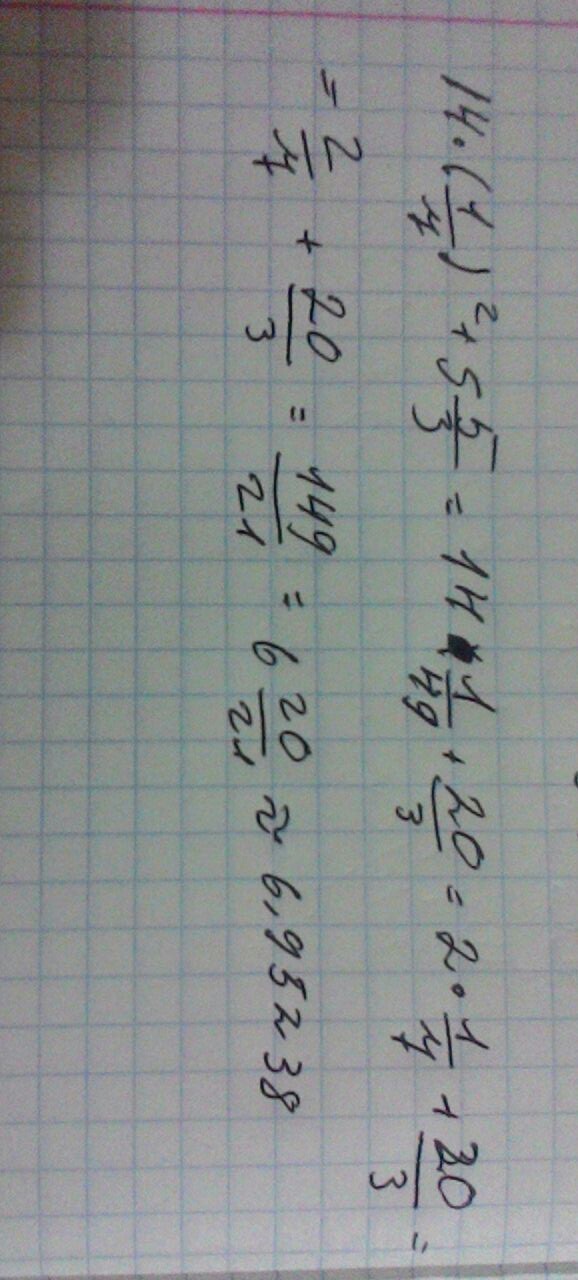 14·(1/7)²+5 5/3 = 14·1/49+20/3 = 2·1/7+20/3 =
= 2/7 + 20/3 = 149/21 = 6 20/21 ≈ 6,95238